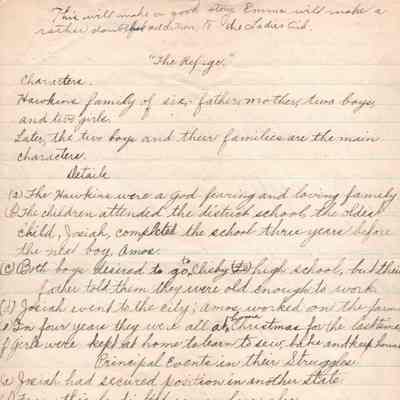 This will make a good story Emma will make a
rather doubtful addition to the Ladies Aid.
"The Refuge."
Characters.
Hawkins family of six, father, mother, two boys,
and two girls.
Later, the two boys and their families are the main
characters.
Details
(a) The Hawkins were a God fearing and loving family
(b) The children attended the district school, the oldest
child, Josiah, completed the school three years before
the next boy, Amos.
(c) Both boys desired to go to high school, but their
father told them they were old enough to work
(d) Josiah went to the city; Amos worked on the farm
(e) In four years they were all at home Christmas for the last time
f Girls were kept at home to learn to sew, bake and keep house
Principal Events in their Struggles
(a) Josiah had secured position in another state.